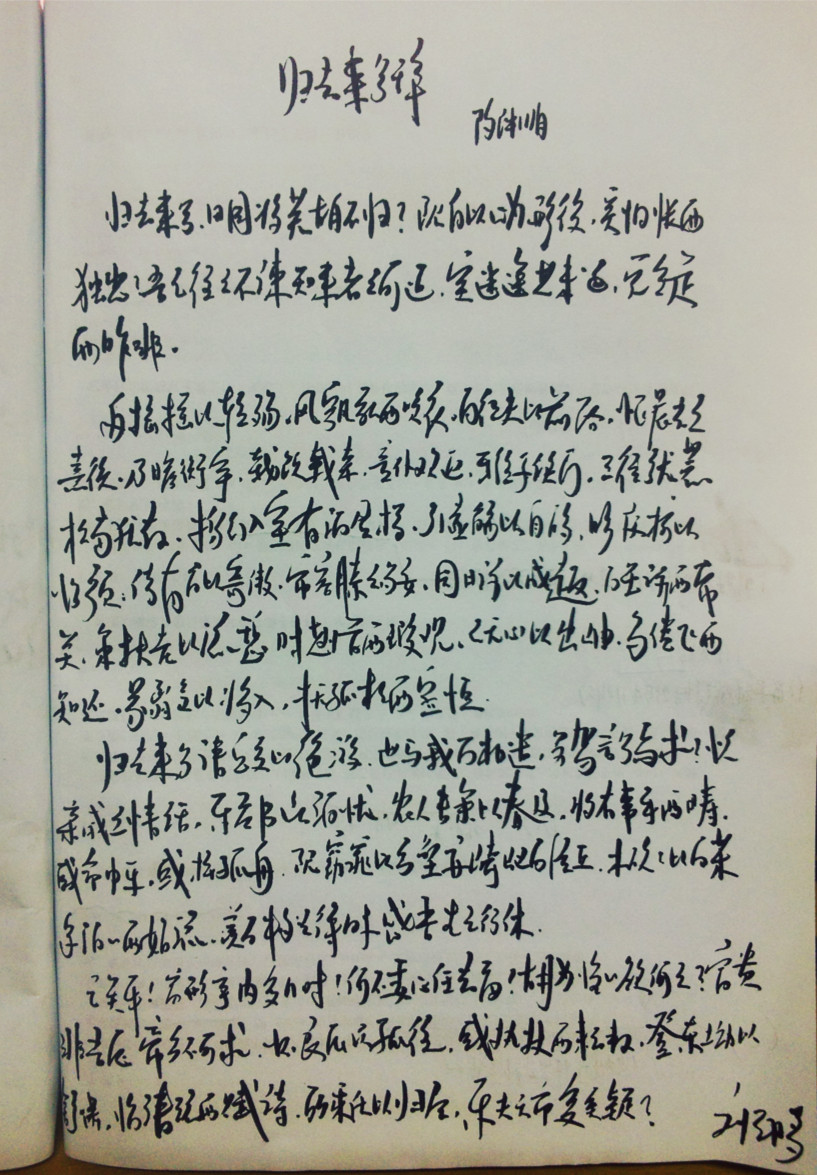 归去来兮辞
陶渊明
归去来兮，田园将芜胡不归？既自以心为形役，奚惆怅而
独悲？悟已往之不谏，知来者之可追，实迷途其未远，觉今是
而昨非。
舟摇摇以轻飏，风飘飘而吹衣，问征夫以前路，恨晨光之
熹微。乃瞻衡宇，载欣载奔，童仆欢迎，稚子候门。三径就荒，
松菊犹存。携幼入室，有酒盈樽。引壶觞以自酌，眄庭柯以
怡颜。倚南窗以寄傲，审容膝之易安。园日涉以成趣，门虽设而常
关。策扶老以流憩，时矫首而遐观。云无心以出岫，鸟倦飞而
知还。景翳翳以将入，抚孤松而盘桓。
归去来兮，请息交以绝游。世与我而相违，复驾言兮焉求？悦
亲戚之情话，乐琴书以消忧。农人告余以春及，将有事乎西畴。
或命巾车，或棹孤舟。既窈窕以寻壑，亦崎岖而经丘。木欣欣以向荣，
泉涓涓而始流。羡万物之得时，感吾生之行休。
已矣乎！寓形宇内复几时！何不委心任去留？胡为遑遑欲何之？富贵
非吾愿，帝乡不可期。怀良辰以孤往，或执杖而耘耔。登东皋以
舒啸，临清流而赋诗。聊乘化以归尽，乐夫天命复奚疑？